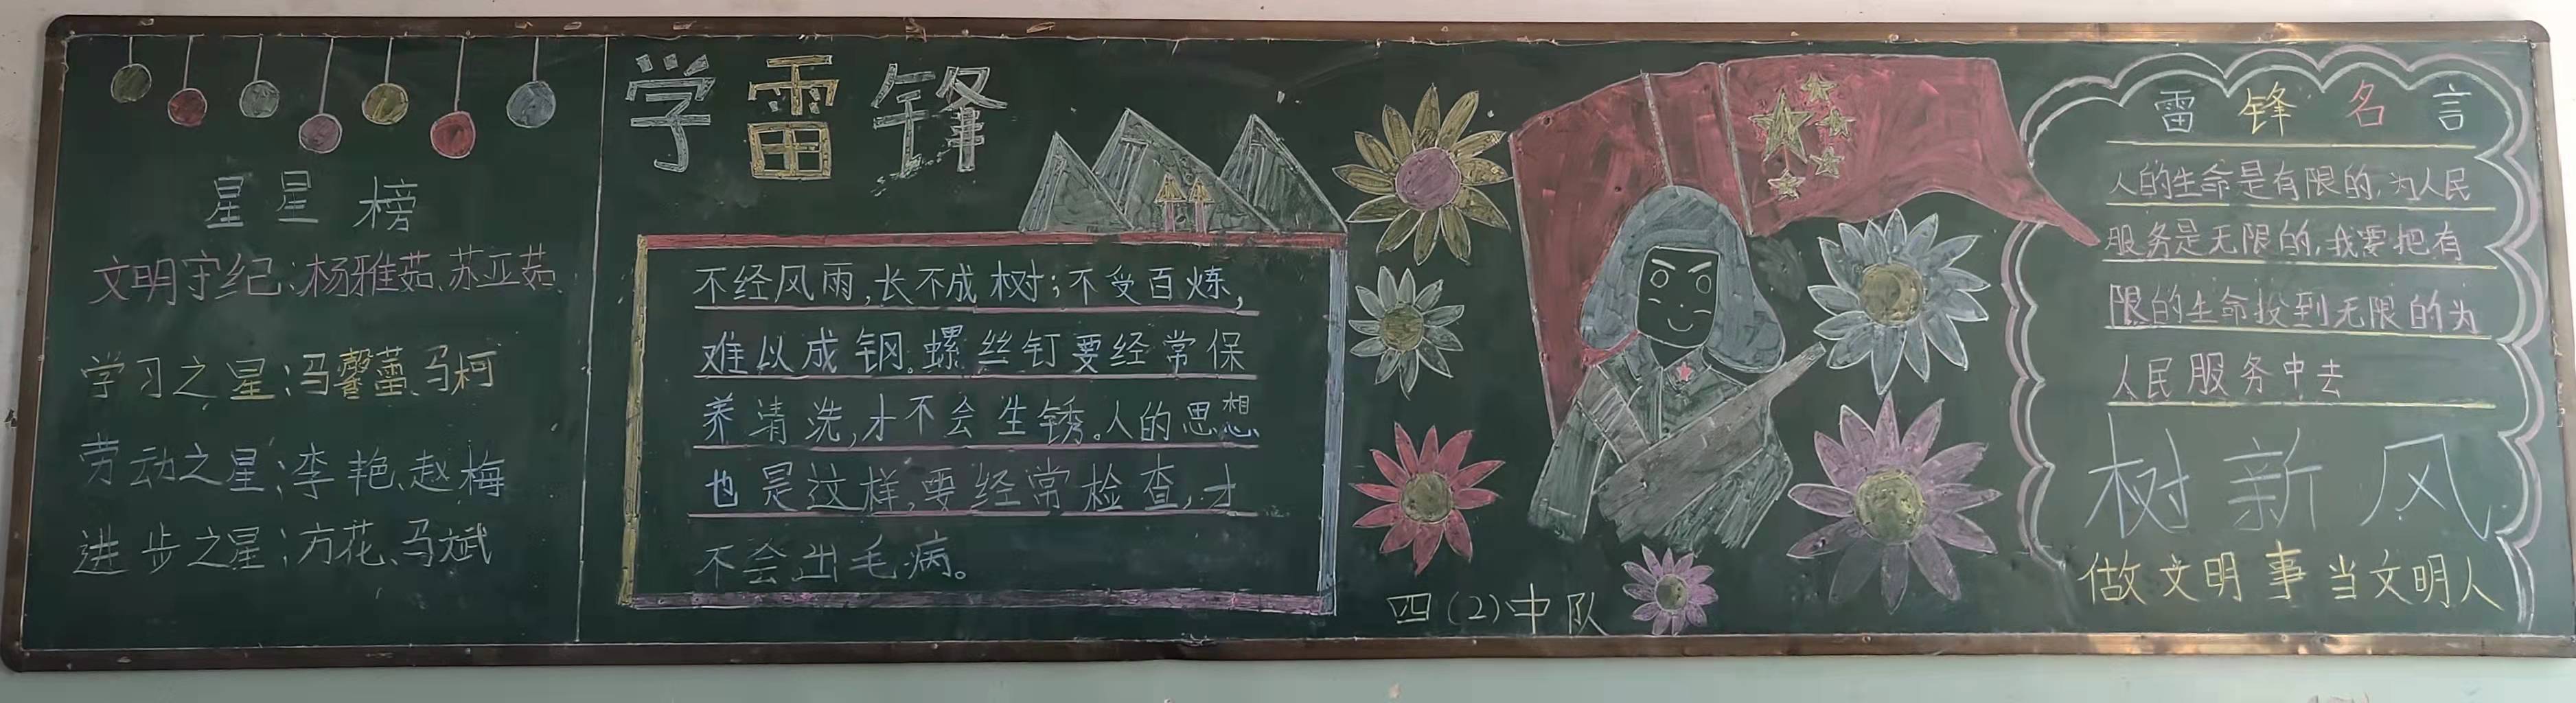 星星榜
文明守纪：杨雅茹、苏亚茹
学习之星：马馨蕾、马柯
劳动之星：李艳、赵梅
进步之星：方花、马斌
学雷锋
不经风雨，长不成树；不受百炼，
难以成钢。螺丝钉要经常保
养清洗，才不会生锈。人的思想
也是这样，要经常检查，才
不会出毛病。
四（2）中队
雷锋名言
人的生命是有限的，为人民
服务是无限的，我要把有
限的生命投到无限的为
人民服务中去
树新风
做文明事 当文明人